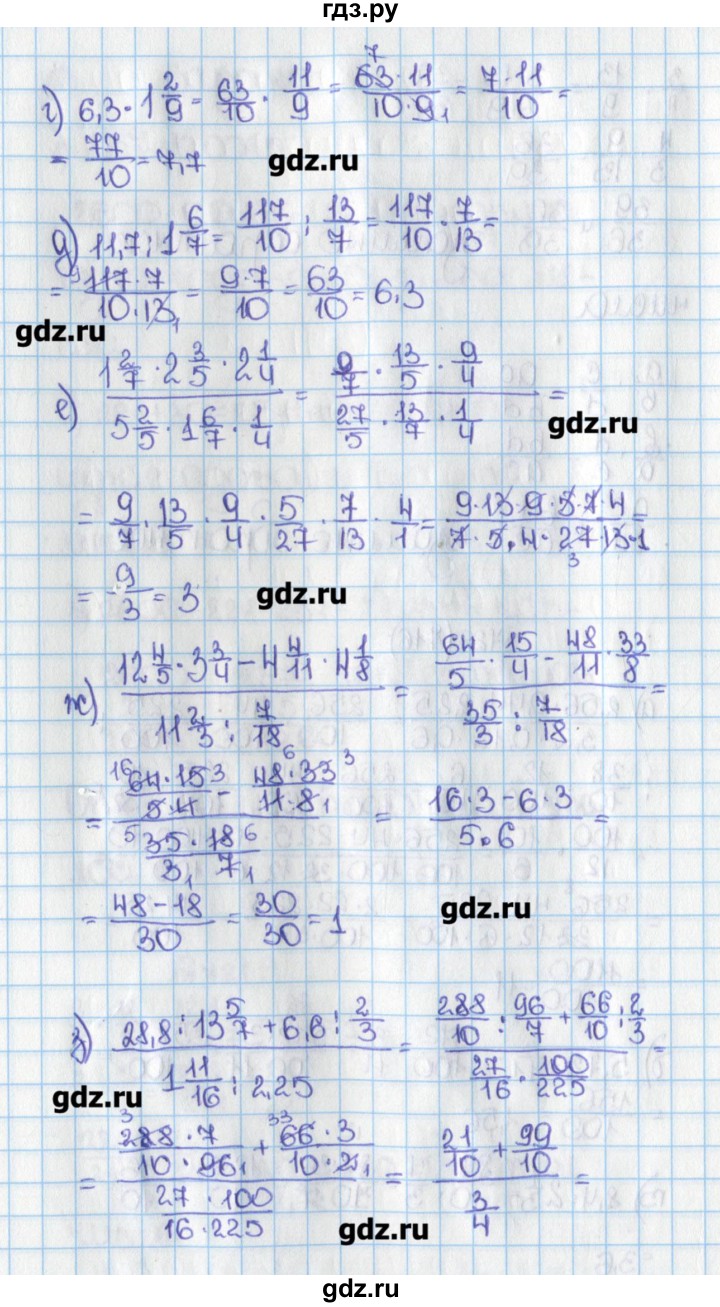 гдз.ру
г) 6,3 · 1 2/9 = 63/10 · 11/9 = 63·11/10·9 = 7·11/10 =
= 77/10 = 7,7
gdz.ru
д) 11,7 : 1 6/7 = 117/10 : 13/7 = 117/10 · 7/13 =
= 117·7/10·13 = 9·7/10 = 63/10 = 6,3
gdz.ru
е) (1 2/7 · 2 3/5 · 2 1/4)/(5 2/5 · 1 6/7 · 1/4) = (9/7 · 13/5 · 9/4)/(27/5 · 13/7 · 1/4) =
gdz.ru
= 9/7 · 13/5 · 9/4 · 5/27 · 7/13 · 4/1 = 9·13·9·5·7·4/7·5·4·27·13·1 =
= 9/3 = 3
gdz.ru
ж) (12 4/5 · 3 3/4 - 4 4/11 · 4 1/8)/(11 2/3 : 7/18) = (64/5 · 15/4 - 48/11 · 33/8)/(35/3 : 7/18) =
= (64·15/5·4 - 48·33/11·8)/(35·18/3·7) = (16·3-6·3)/(5·6) =
= (48-18)/30 = 30/30 = 1
gdz.ru
з) (28,8 : 13 5/7 + 6,6 : 2/3)/(1 11/16 : 2,25) = (288/10 : 96/7 + 66/10 : 2/3)/(27/16 · 100/225) =
gdz.ru
= (288·7/10·96 + 66·3/10·2)/(27·100/16·225) = (21/10 + 99/10)/(3/4) =
gdz.ru
gdz.ru